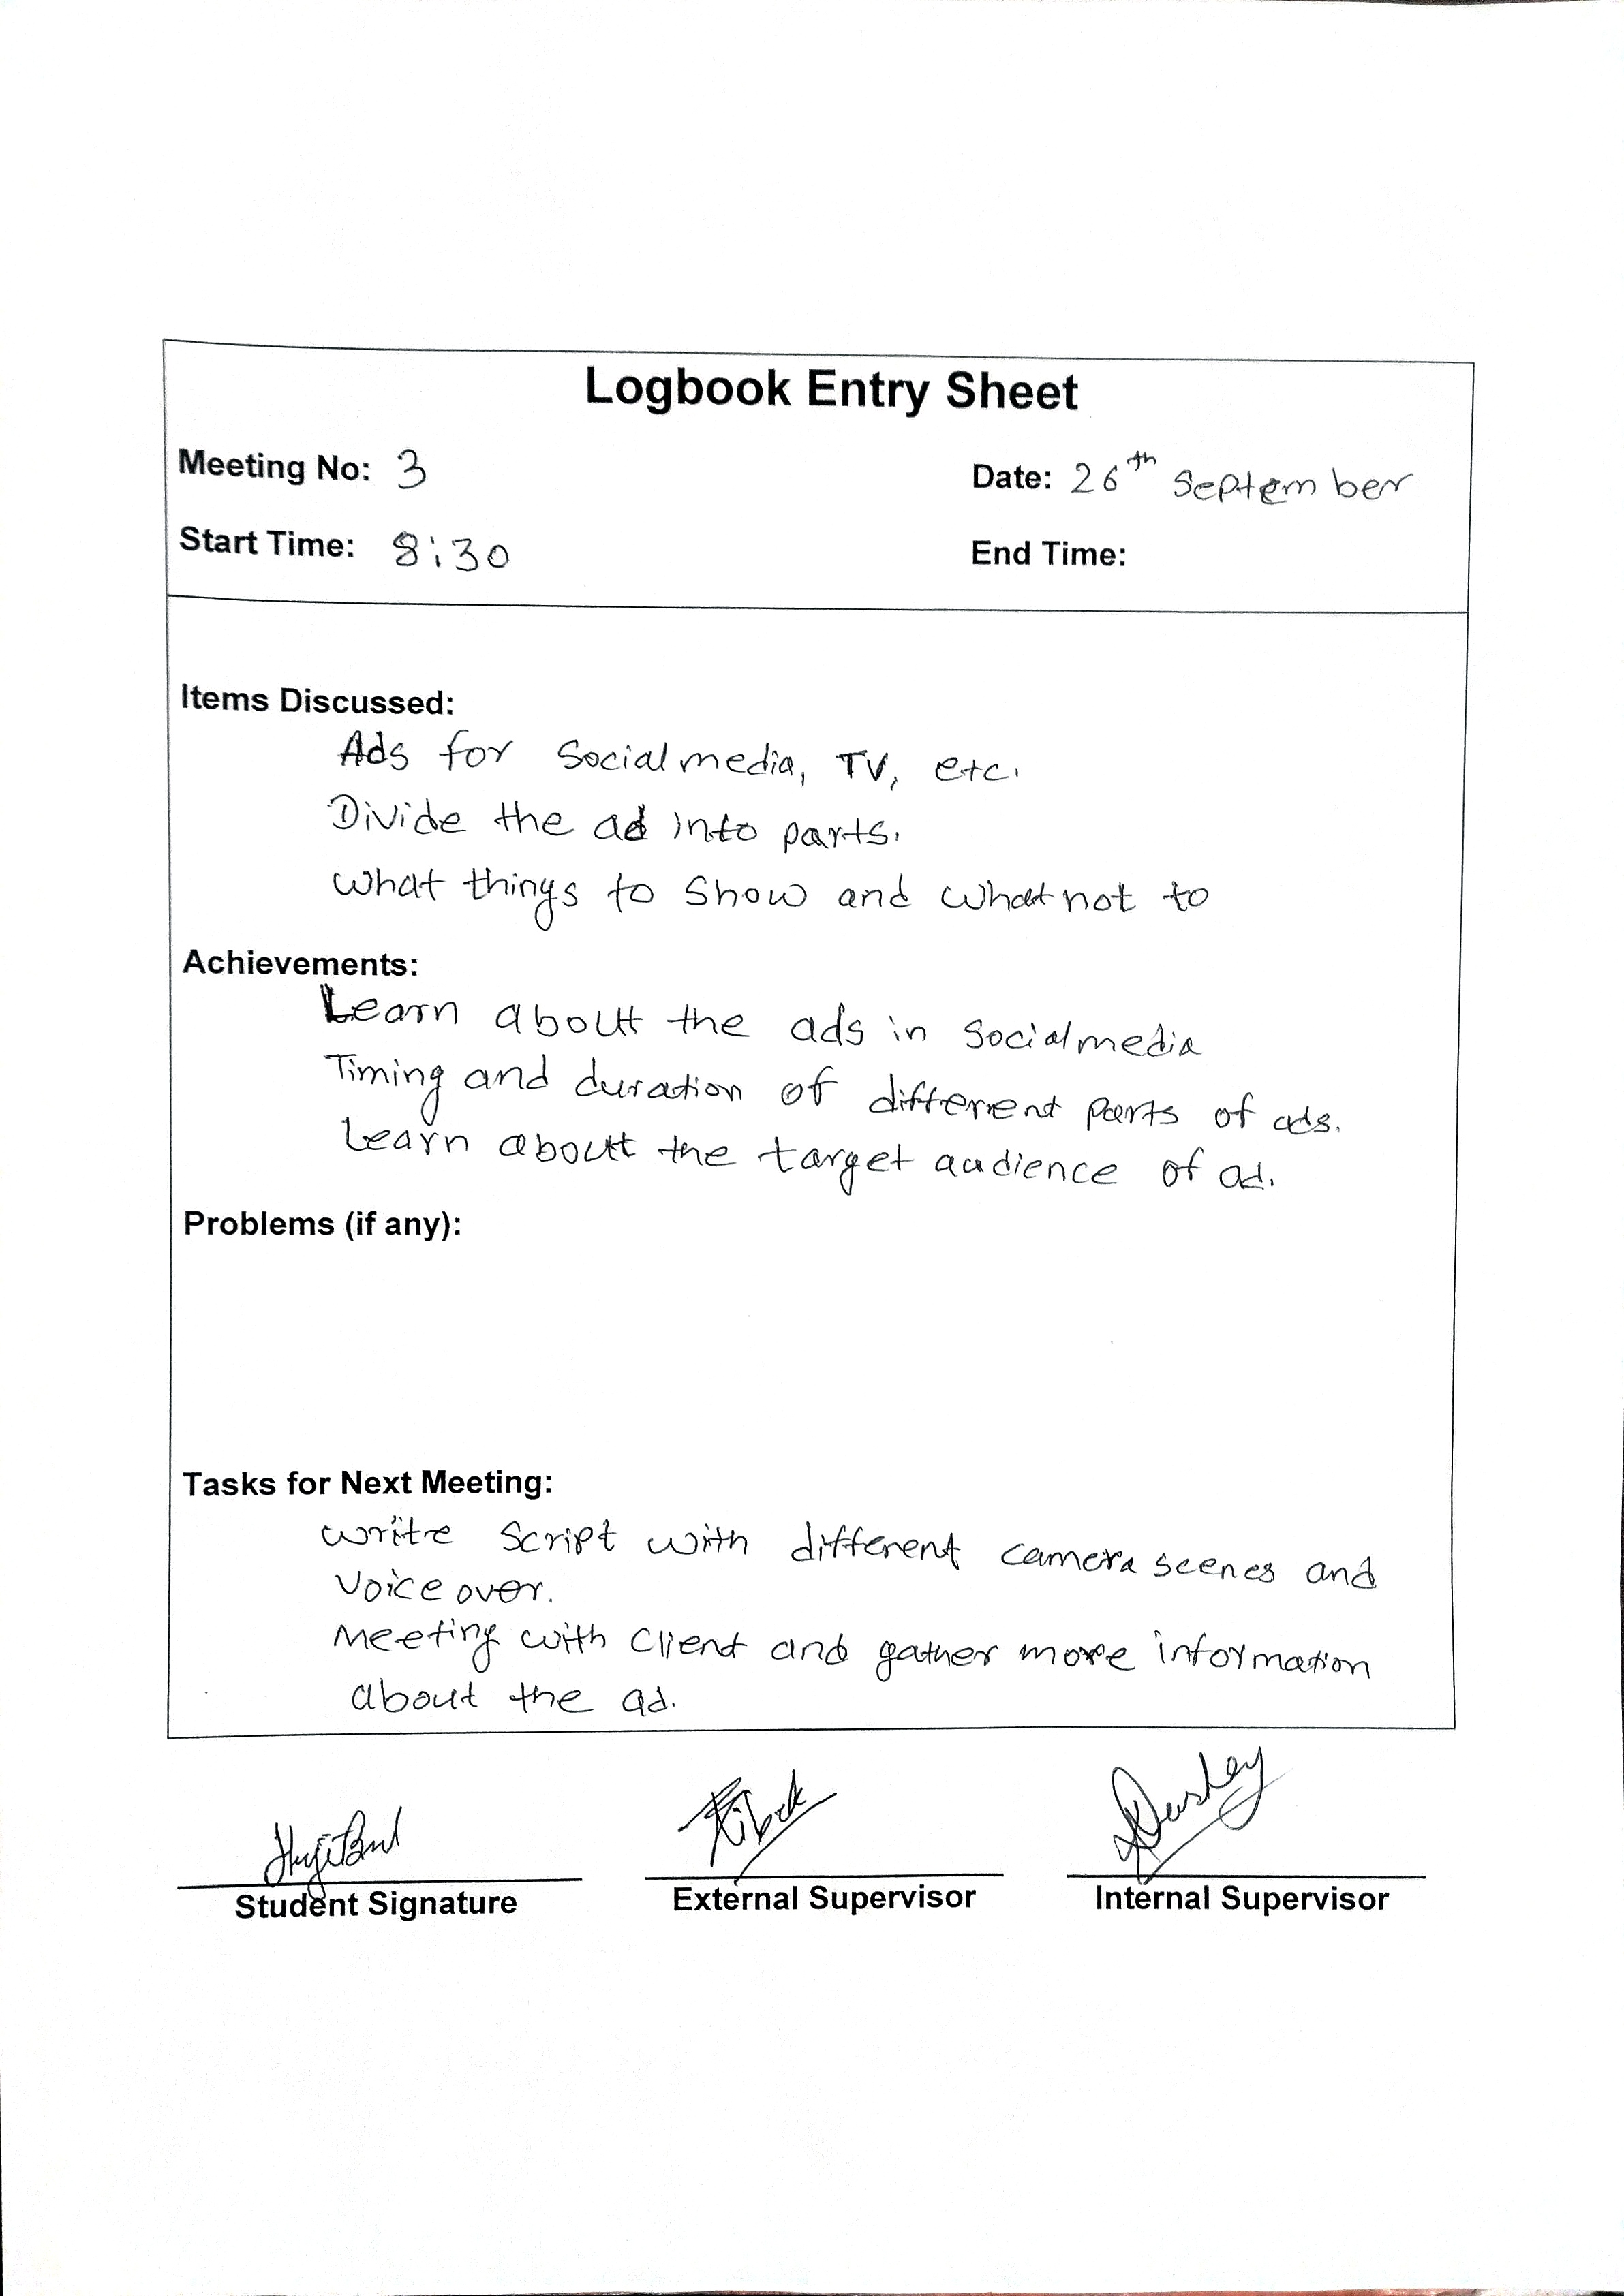 Logbook Entry Sheet
Meeting No: 3 Date: 26th September
Start Time: 8:30 End Time:
Items Discussed:
Ads for Social media, TV, etc.
Divide the ad into parts.
What things to Show and What not to
Achievements:
Learn about the ads in Social media
Timing and duration of different parts of ads.
Learn about the target audience of ad.
Problems (if any):
Tasks for Next Meeting:
Write Script with different camera scenes and
Voice over.
Meeting with Client and gather more information
about the ad.
Student Signature External Supervisor Internal Supervisor